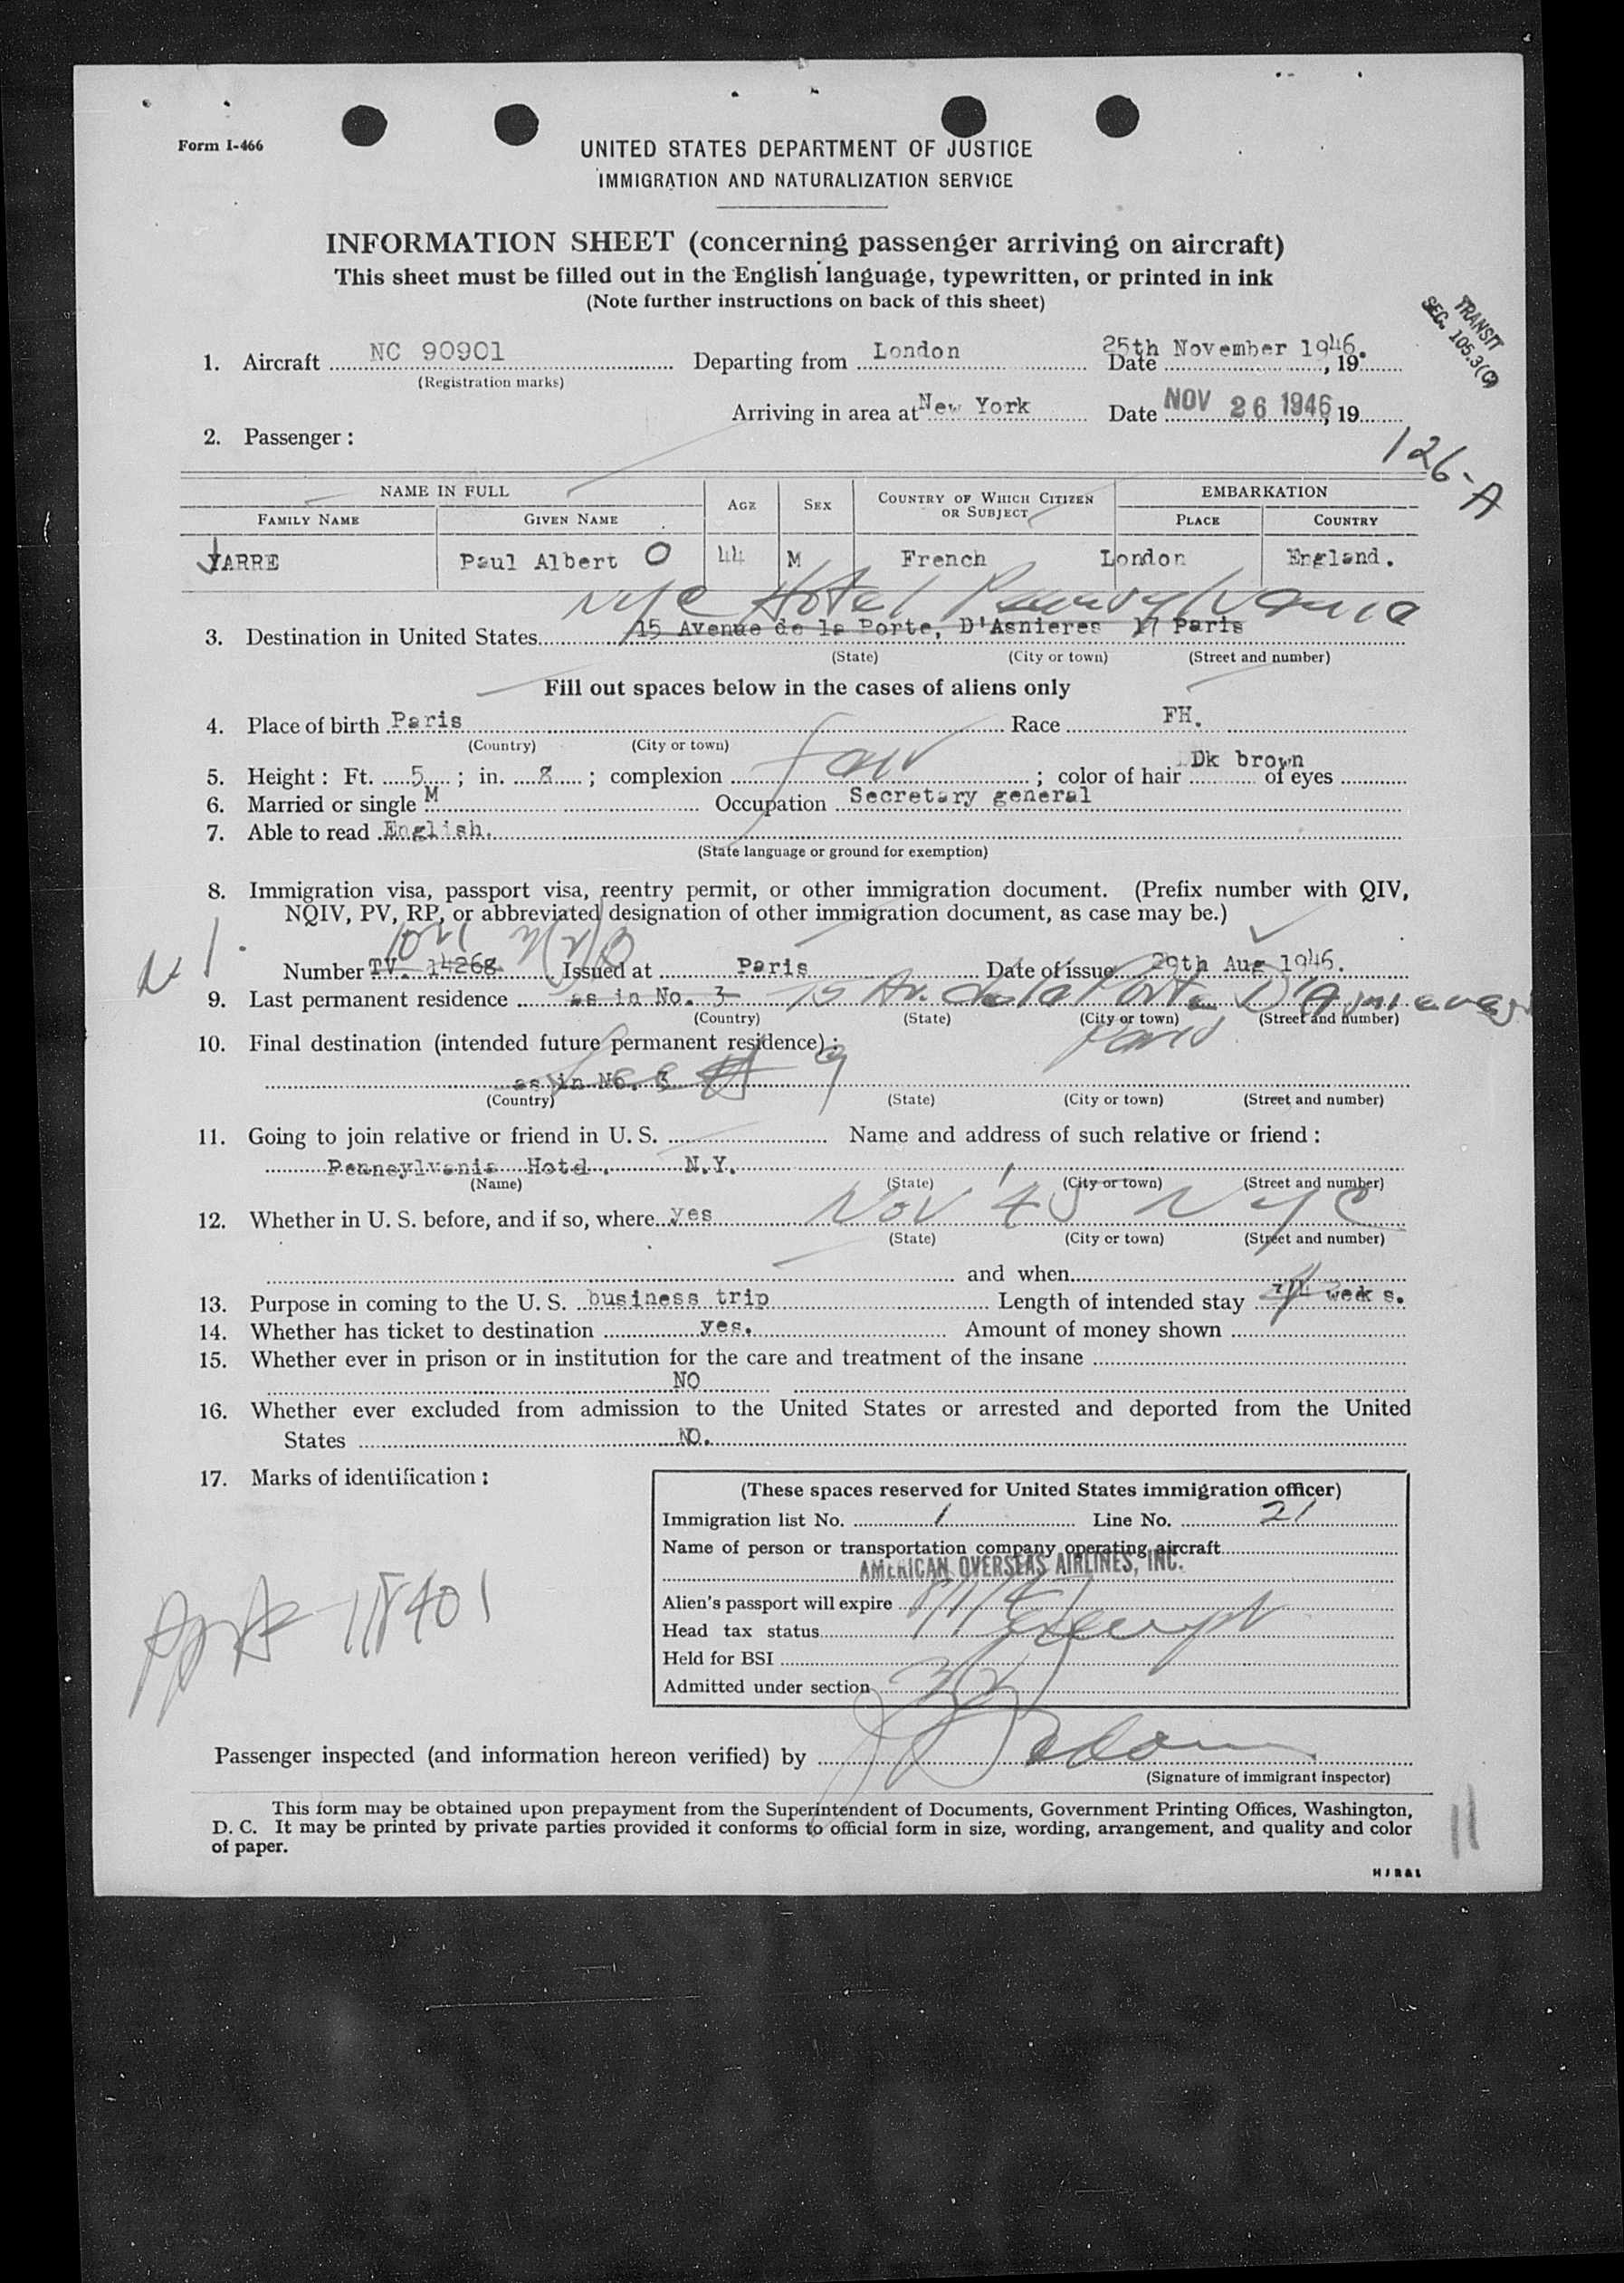 Form I-466
UNITED STATES DEPARTMENT OF JUSTICE
IMMIGRATION AND NATURALIZATION SERVICE
INFORMATION SHEET (concerning passenger arriving on aircraft)
This sheet must be filled out in the English language, typewritten, or printed in ink
(Note further instructions on back of this sheet)
TRANSIT
SEC. 105.3(C)
1. Aircraft NC 90901 Departing from London Date 25th November 1946. , 19
(Registration marks)
Arriving in area at New York Date NOV 26 1946, 19
2. Passenger:
126-A
NAME IN FULL AGE SEX COUNTRY OF WHICH CITIZEN OR SUBJECT EMBARKATION
FAMILY NAME GIVEN NAME PLACE COUNTRY
YARRE Paul Albert O 44 M French London England.
NYC Hotel Pennsylvania
3. Destination in United States 15 Avenue de la Porte, D'Asnieres 17 Paris
(State) (City or town) (Street and number)
Fill out spaces below in the cases of aliens only
4. Place of birth Paris Race FH.
(Country) (City or town)
5. Height: Ft. 5; in. 8; complexion fair; color of hair Dk brown of eyes
6. Married or single M Occupation Secretary general
7. Able to read English.
(State language or ground for exemption)
8. Immigration visa, passport visa, reentry permit, or other immigration document. (Prefix number with QIV,
NQIV, PV, RP, or abbreviated designation of other immigration document, as case may be.)
Number TV. 14268. Issued at Paris Date of issue 29th Aug 1946.
9. Last permanent residence as in No. 3 15 Av. de la Porte D'Asnieres
(Country) (State) (City or town) (Street and number)
Paris
10. Final destination (intended future permanent residence):
as in No. 3 See # 9
(Country) (State) (City or town) (Street and number)
11. Going to join relative or friend in U. S. Name and address of such relative or friend:
Pennsylvania Hotel. N.Y.
(Name) (State) (City or town) (Street and number)
12. Whether in U. S. before, and if so, where yes Nov '45 NYC
(State) (City or town) (Street and number)
and when
13. Purpose in coming to the U. S. business trip Length of intended stay weeks.
14. Whether has ticket to destination yes. Amount of money shown
15. Whether ever in prison or in institution for the care and treatment of the insane
NO
16. Whether ever excluded from admission to the United States or arrested and deported from the United
States NO.
17. Marks of identification:
(These spaces reserved for United States immigration officer)
Immigration list No. 1 Line No. 21
Name of person or transportation company operating aircraft
AMERICAN OVERSEAS AIRLINES, INC.
Alien's passport will expire
Head tax status Exempt
Held for BSI
Admitted under section 3(2)
Passenger inspected (and information hereon verified) by
(Signature of immigrant inspector)
This form may be obtained upon prepayment from the Superintendent of Documents, Government Printing Offices, Washington,
D. C. It may be printed by private parties provided it conforms to official form in size, wording, arrangement, and quality and color
of paper.
11